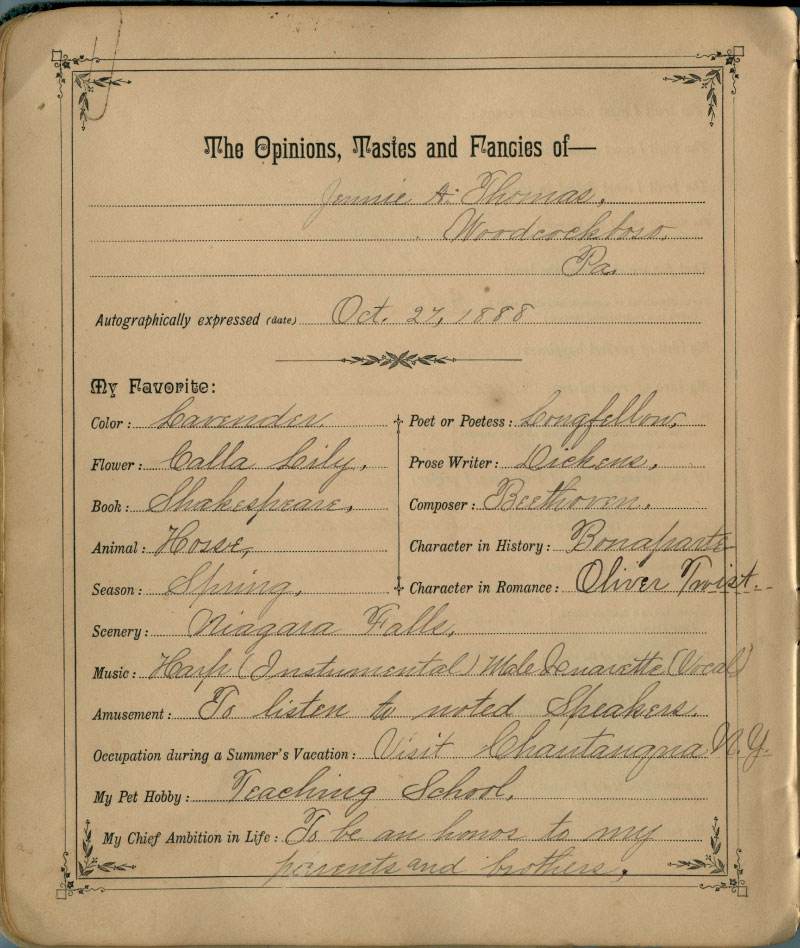 The Opinions, Tastes and Fancies of—
Jennie A. Thomas.
Woodcockboro,
Pa.
Autographically expressed (date) Oct. 27, 1888
My Favorite:
Color: Lavender.
Flower: Calla Lily.
Book: Shakespeare.
Animal: Horse,
Season: Spring.
Poet or Poetess: Longfellow.
Prose Writer: Dickens.
Composer: Beethoven.
Character in History: Bonaparte
Character in Romance: Oliver Twist.
Scenery: Niagara Falls.
Music: Harp (Instrumental) Male (Vocal)
Amusement: To listen to noted Speakers.
Occupation during a Summer's Vacation: Visit Chautauqua N.Y.
My Pet Hobby: Teaching School.
My Chief Ambition in Life: To be an honor to my
parents and brothers.